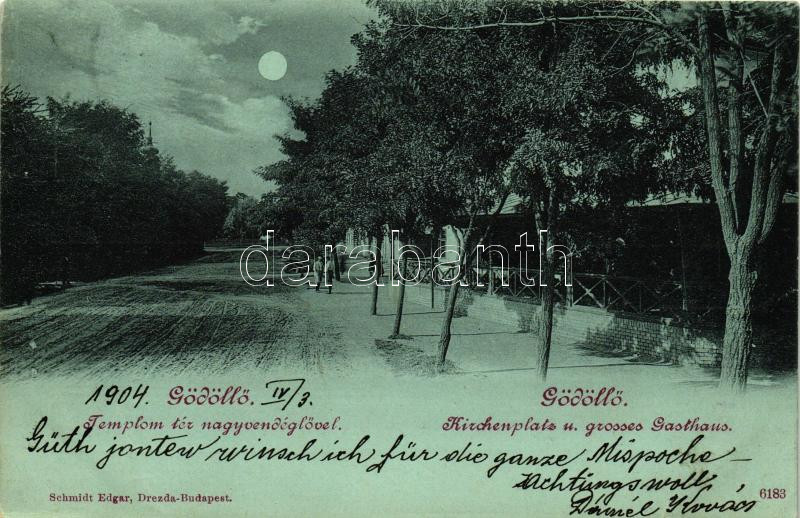 darabanth
1904. Gödöllő. IV/3.
Gödöllő.
Templom tér nagyvendéglővel.
Kirchenplatz u. grosses Gasthaus.
Güth jontew winsch ich für die ganze Mispoche –
Achtungswoll
Dániel Kovács
Schmidt Edgar, Drezda-Budapest.
6183